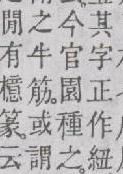 其字正作紐
今官園種之。
之牛筋。或謂
閒有檍篆。云